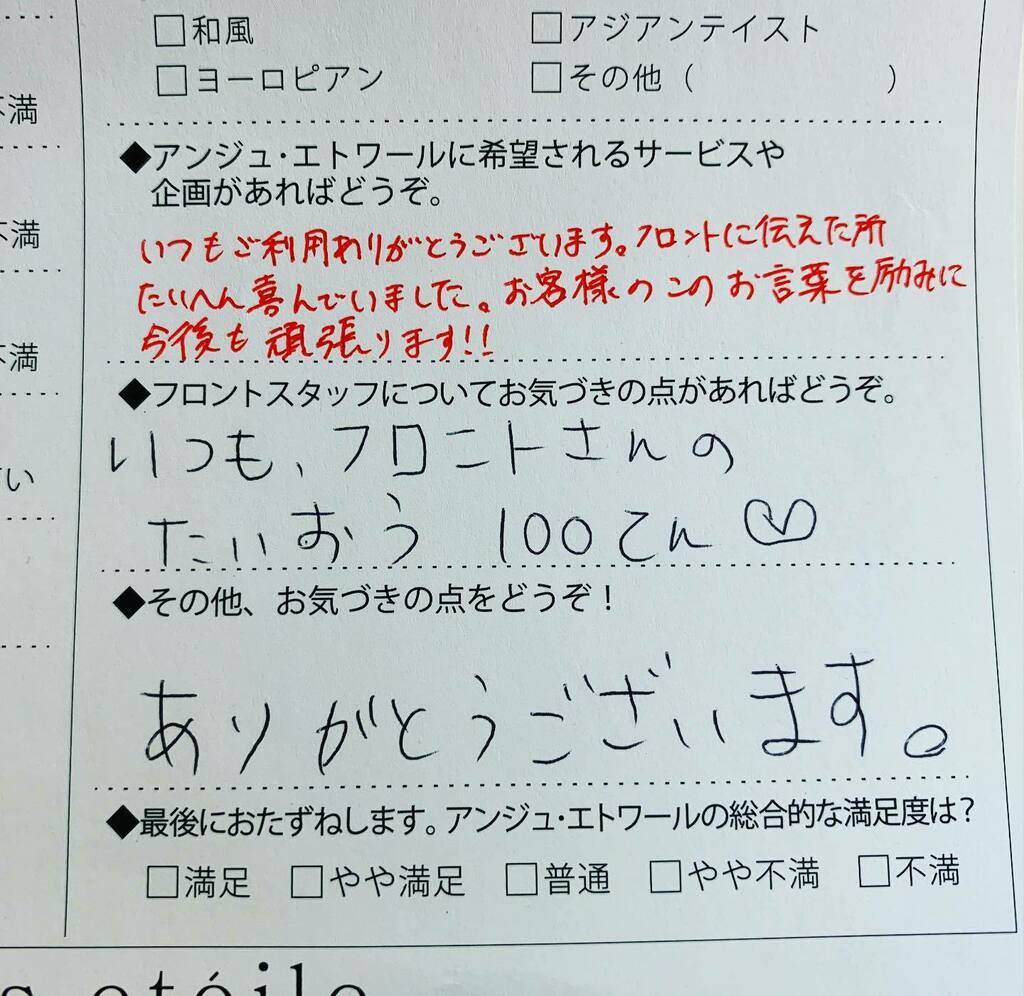 □和風 □アジアンテイスト
□ヨーロピアン □その他（ ）
不満
◆アンジュ・エトワールに希望されるサービスや
企画があればどうぞ。
不満
いつもご利用ありがとうございます。フロントに伝えた所
たいへん喜んでいました。お客様のこのお言葉を励みに
今後も頑張ります!!
不満
◆フロントスタッフについてお気づきの点があればどうぞ。
いつも、フロントさんの
さい
たいおう 100てん♡
◆その他、お気づきの点をどうぞ！
ありがとうございます。
◆最後におたずねします。アンジュ・エトワールの総合的な満足度は？
□満足 □やや満足 □普通 □やや不満 □不満
s etóile